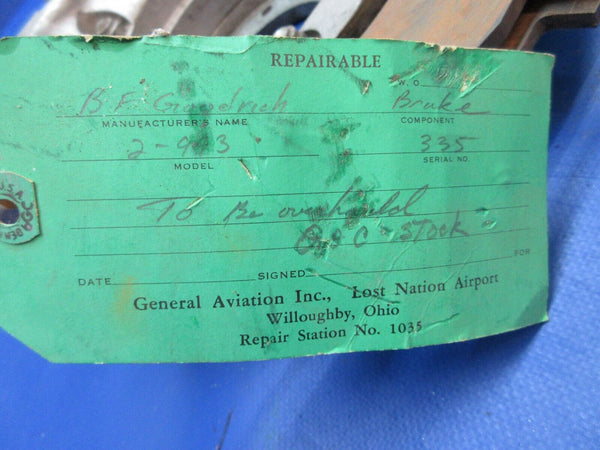 REPAIRABLE
W. O.
B F Goodrich Brake
MANUFACTURER'S NAME COMPONENT
335
MODEL SERIAL NO.
To Be
C - Stock
FOR
DATE SIGNED
General Aviation Inc., Lost Nation Airport
Willoughby, Ohio
Repair Station No. 1035
U.S.A.